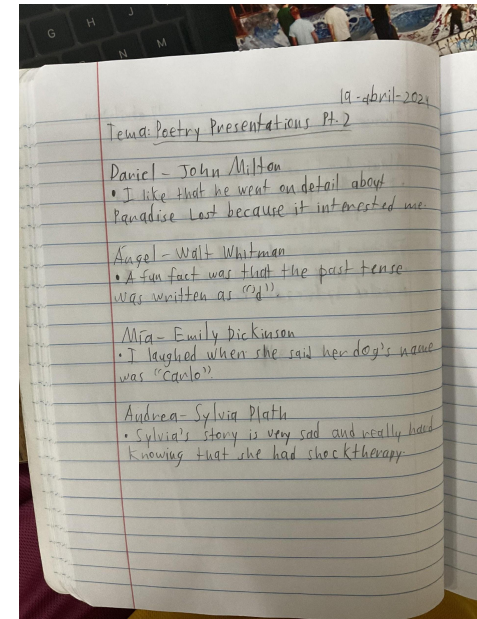 G H J
N M
19-abril-2024
Tema: Poetry Presentations Pt. 2
Daniel - John Milton
• I like that he went on detail about
Paradise Lost because it interested me.
Ángel - Walt Whitman
• A fun fact was that the past tense
was written as "'d".
Mía - Emily Dickinson
• I laughed when she said her dog's name
was "Carlo"
Andrea - Sylvia Plath
• Sylvia's story is very sad and really hard
knowing that she had shocktherapy